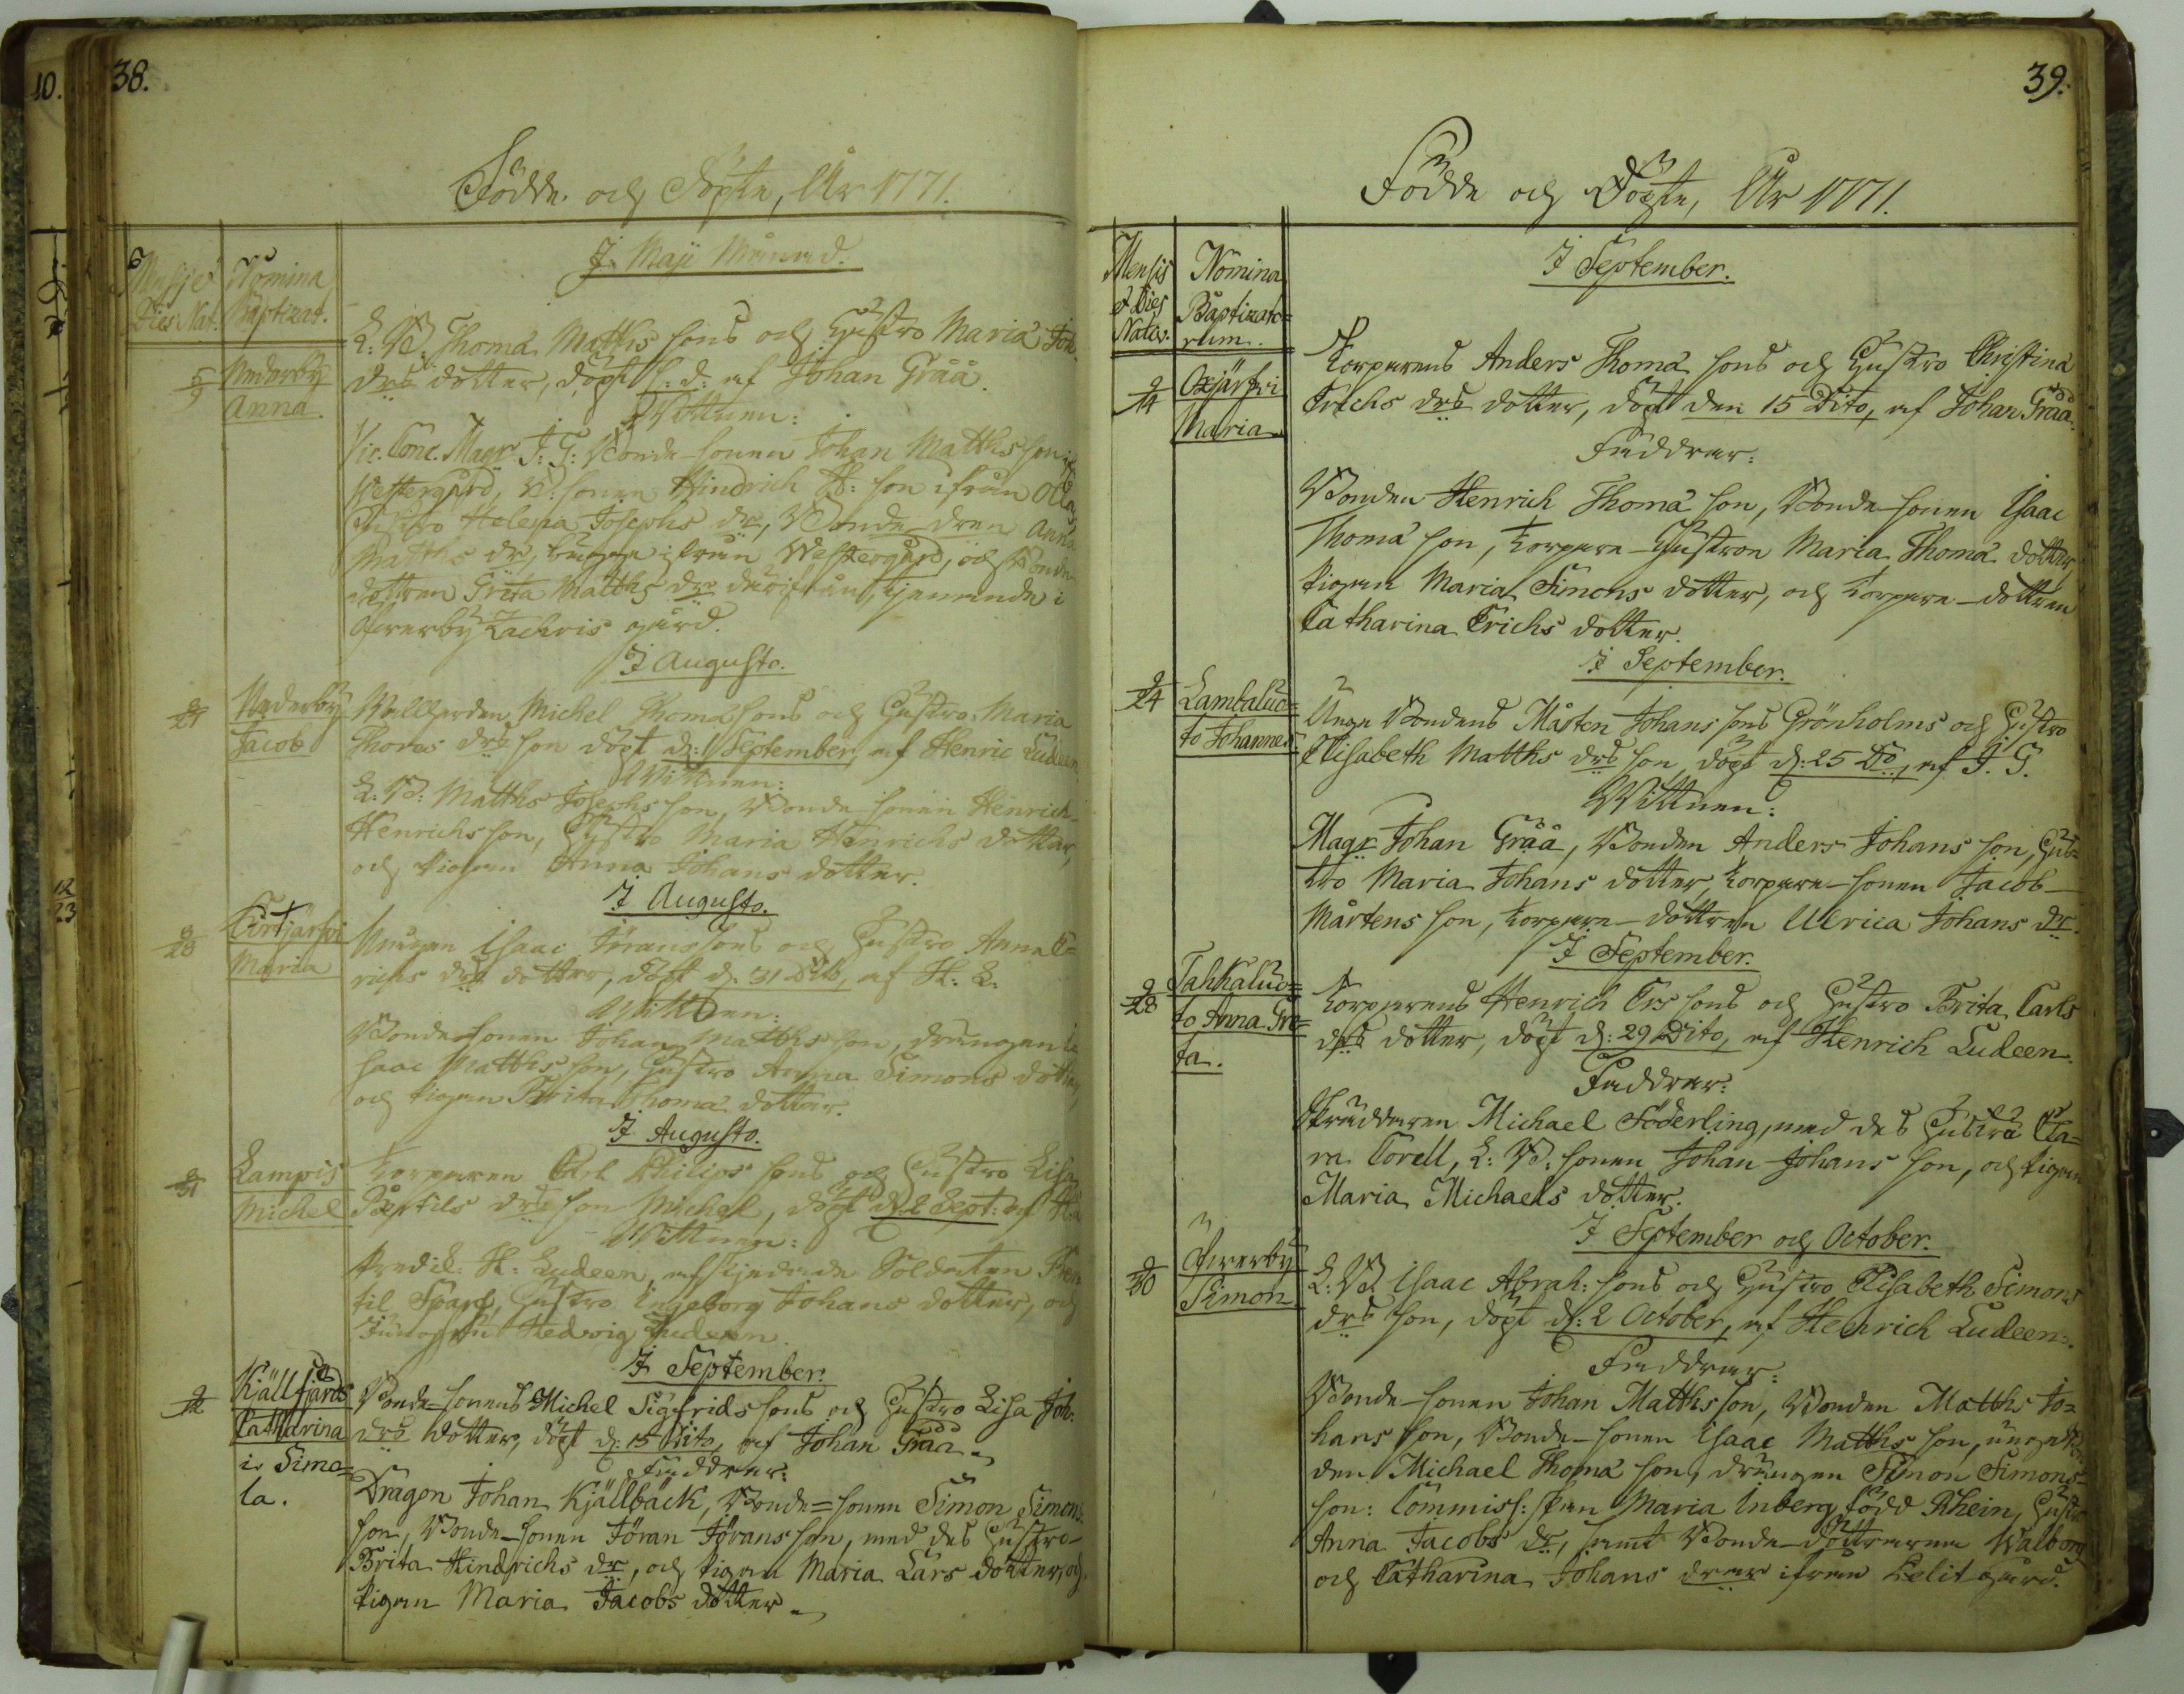 10.
38.
Födde och Döpte, År 1771.
J Maji Månad.
Mensis et Nomina
Dies Nat. Baptizat.
5/9 Nederby
Anna.
L: B: Thomä Matths sons och Hustro Maria Joh.
drs dotter, döpt s: d: af Johan Gråå.
Wittnen:
Vic. Conc. Magr J: G: Bonde-sonen Johan Matths son
Westergård, B: sonen Hindrich H: son ifrån
Hustro Helena Josephs dr, Bonde-dren Anna
Matths dr, ifrån Westergård, och Bonde
dottren Brita Matths dr därifrån, tjenande i
Öfwerby Zachris gård.
12/23
J Augusto.
8/27 Nederby
Jacob
Michel Thomä sons och Hustro Maria
Thomas drs son döpt d: 1 September, af Henric Ludeen.
Wittnen:
L: B: Matths Josephs son, Bonde-sonen Henrich
Henrichs son, Hustro Maria Henrichs dotter,
och Pigan Anna Johans dotter.
J Augusto.
8/28
Maria
Drängen Isaac Jörans sons och Hustro Anna E=
richs drs dotter, döpt d. 31 Dito, af H: L.
Wittnen:
Bonde-sonen Johan Matths son, drängen I=
saac Matths son, Hustro Anna Simons dotter,
och pigan Brita Thomä dotter.
J Augusto.
8/31 Lampis
Michel
Torparen Carl Philips sons och Hustro Lisa
Bertils drs son Michel, döpt d. 2 Sept: af H: L
Wittnen:
Predik: H: Ludeen, afskjedade Soldaten Ber
til Sparf, Hustro Ingeborg Johans dotter, och
Jungfru Hedvig Ludeen.
J September.
9/12 Kjällfjärds
Catharina
i Simo=
la.
Bonde-sonens Michel Sigfrids sons och Hustro Lisa Joh:
drs dotter, döpt d: 15 Dito, af Johan Gråå.
Faddrar:
Dragon Johan Kjällbäck, Bonde=sonen Simon Simons
son, Bonde-sonen Jöran Jörans son, med des Hustro
Brita Hindrichs dr, och pigan Maria Lars dotter, och
pigan Maria Jacobs dotter.
39.
Födde och Döpte, År 1771.
Mensis
et Dies
Natov.
Nomina
Baptizato=
rum.
J September.
9/14 Oxjärfwi
Maria
Torparens Anders Thomä sons och Hustro Christina
Erichs drs dotter, döpt den 15 Dito, af Johan Gråå.
Faddrar:
Bonden Henrich Thomä son, Bonde-sonen Isaac
Thomä son, Torpare-Hustron Maria Thomä dotter
pigan Maria Simons dotter, och Torpare-dottren
Catharina Erichs dotter.
J September.
9/24 Lambaluo=
to Johannes
Unga Bondens Mårten Johans sons Grönholms och Hustro
Elisabeth Matths drs son, döpt d: 25 Do, af J. G.
Wittnen:
Magr Johan Gråå, Bonden Anders Johans son, Hus=
tro Maria Johans dotter, Torpare-sonen Jacob
Mårtens son, Torpare-dottren Ulrica Johans dr.
J September.
9/28 Tahkaluo=
to Anna Gre=
ta.
Torparens Henrich Ers sons och Hustro Brita Carls
drs dotter, döpt d: 29 Dito, af Henrich Ludeen.
Faddrar:
Skräddaren Michael Söderling, med des Hustru Cla=
ra Corell, L: B: sonen Johan Johans son, och pigan
Maria Michaels dotter.
J September och October.
9/30 Öfwerby
Simon
L: B: Isaac Abrah: sons och Hustro Elisabeth Simons
drs son, döpt d: 2 October, af Henrich Ludeen.
Faddrar:
Bonde-sonen Johan Matths son, Bonden Matths Jo=
hans son, Bonde-sonen Isaac Matths son, unga Bon
den Michael Thomä son, drängen Simon Simons
son: Commiss: frun Maria Inberg född Rhein, Hustro
Anna Jacobs dr, samt Bonde-döttrarna Walborg
och Catharina Johans drar ifrån Kelit gård.